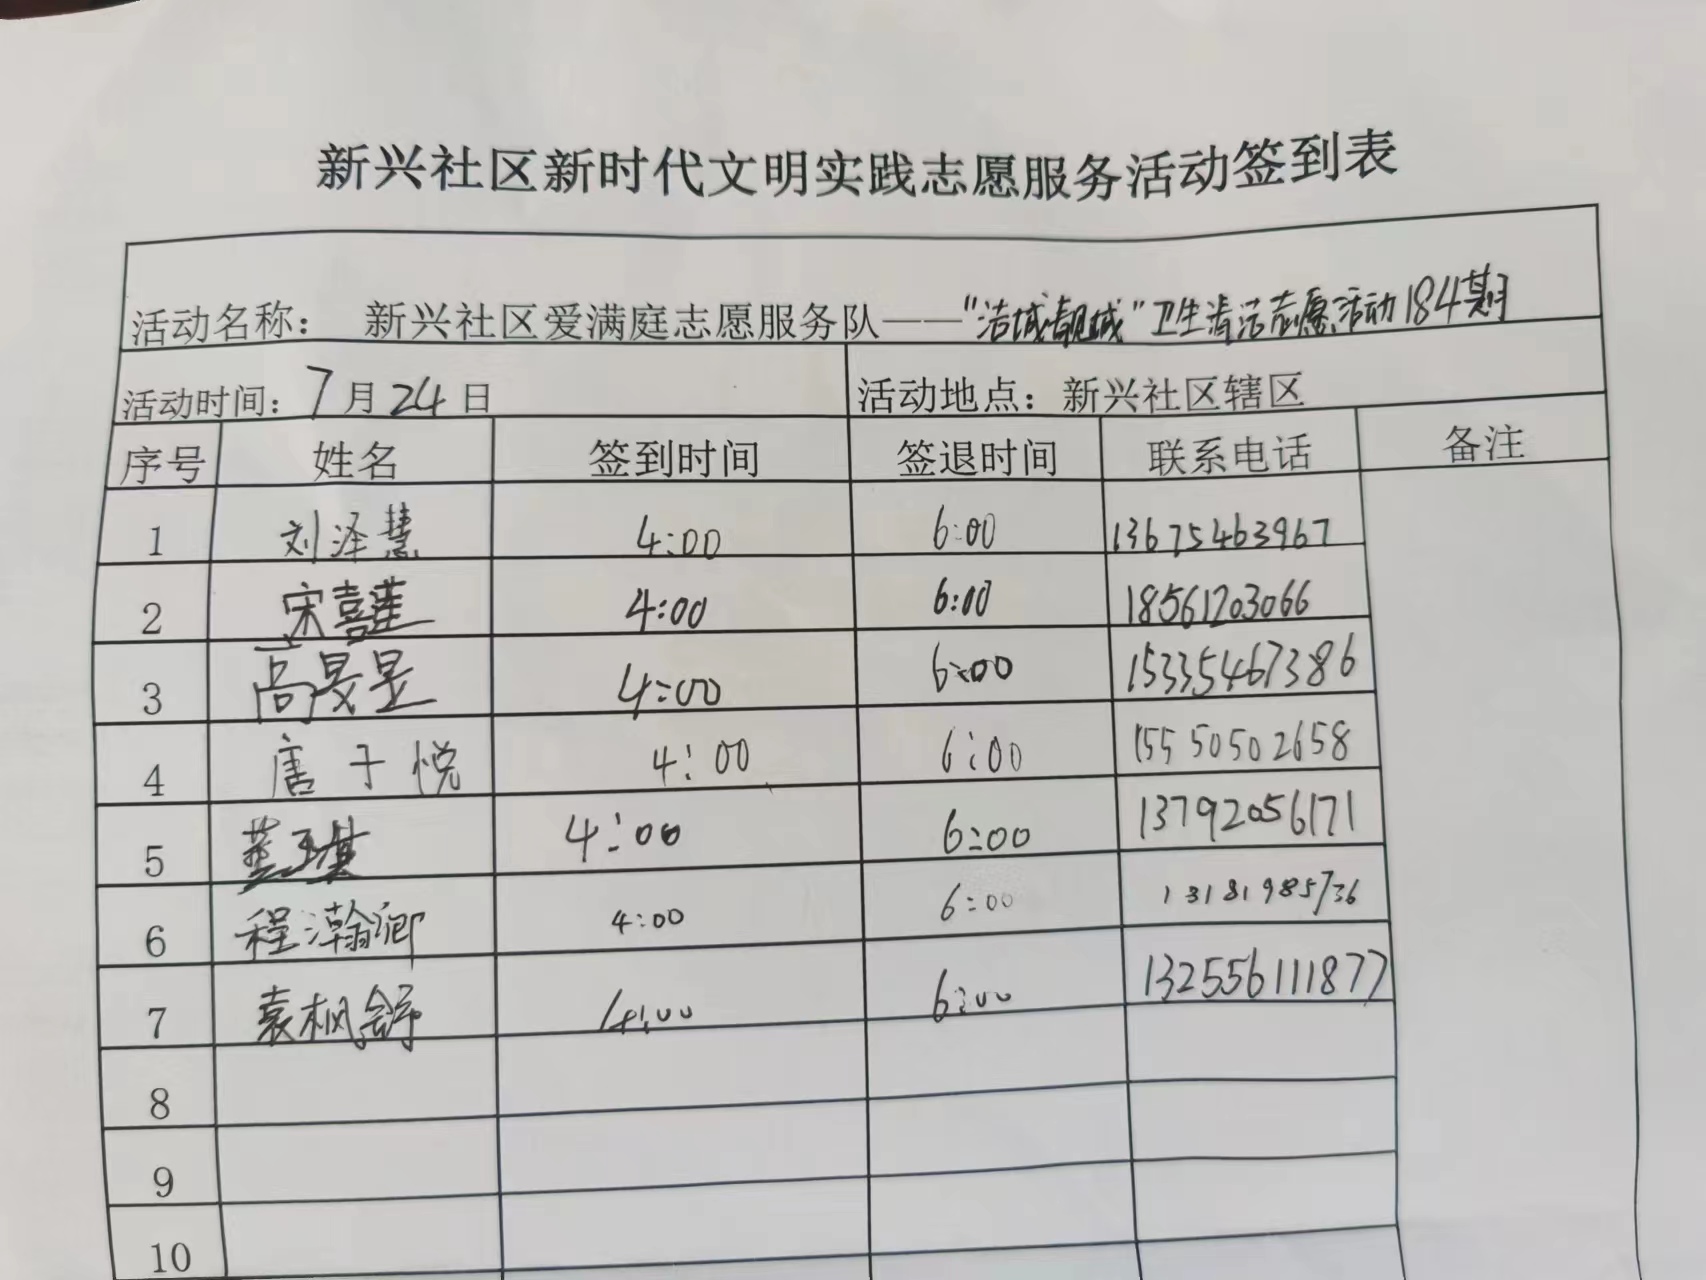 新兴社区新时代文明实践志愿服务活动签到表
活动名称： 新兴社区爱满庭志愿服务队——“洁城靓城”卫生清洁志愿活动184期
活动时间：7月24日 活动地点：新兴社区辖区
序号 姓名 签到时间 签退时间 联系电话 备注
1 刘泽慧 4:00 6:00 13675463967
2 宋喜莲 4:00 6:00 18561203066
3 高旻昱 4:00 6:00 15335467386
4 唐于悦 4:00 6:00 15550502658
5 4:00 6:00 13792056171
6 程瀚卿 4:00 6:00 13181985736
7 袁枫舒 4:00 6:00 132556111877
8
9
10